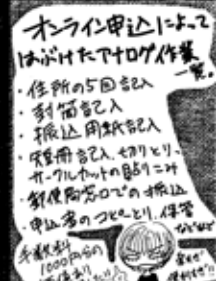 オンライン申込によって
はぶけたアナログ作業
一覧。
・住所の5回記入
・封筒記入
・振込用紙記入
・短冊記入、切りとり、
サークルカットの貼りこみ
・郵便局窓口での振込
・申込書のコピーとり、保管
などなど
手数料
1000円分の
価値あり
便利です!!